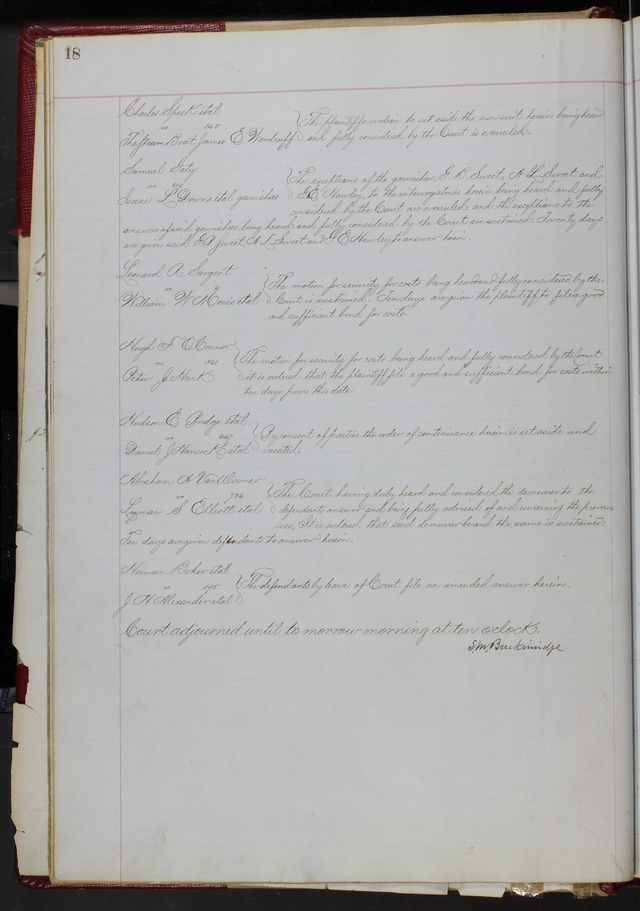 18
Charles Speck et al
vs 145
The Steam Boat James E Woodruff
The plaintiffs motion to set aside the non suit herein being heard
and fully considered by the Court is overruled.
Samuel Gaty
vs
Isaac L Downs et al garnishees
The exceptions of the garnishees, G B Sweet, A L Sweet and
G E Hawley, to the interrogatories herein being heard and fully
considered by the Court are overruled, and the exceptions to the
answer of said garnishees being heard and fully considered by the Court are sustained. Twenty days
are given said G B Sweet, A L Sweet and G E Hawley to answer herein.
Leonard R Sargent
vs
William W Morris et al
The motion for security for costs being heard and fully considered by the
Court is sustained. Ten days are given the plaintiff to file a good
and sufficient bond for costs.
Hugh F O'Connor
vs
Peter J Hurk
The motion for security for costs being heard and fully considered by the Court
it is ordered that the plaintiff file a good and sufficient bond for costs within
ten days from this date.
Hudson E Bridge et al
vs
Daniel J Hancock et al
By consent of parties the order of continuance herein is set aside and
vacated.
Abraham H VanWormer
vs 734
Lyman S Elliott et al
The Court having duly heard and considered the demurrer to the
defendants answer and being fully advised of and concerning the prem-
ises, It is ordered that said demurrer be and the same is sustained.
Ten days are given defendants to answer herein.
Herman Boker et al
vs
J H Alexander et al
The defendants by leave of Court file an amended answer herein.
Court adjourned until to morrow morning at ten o'clock.
S. M. Breckinridge